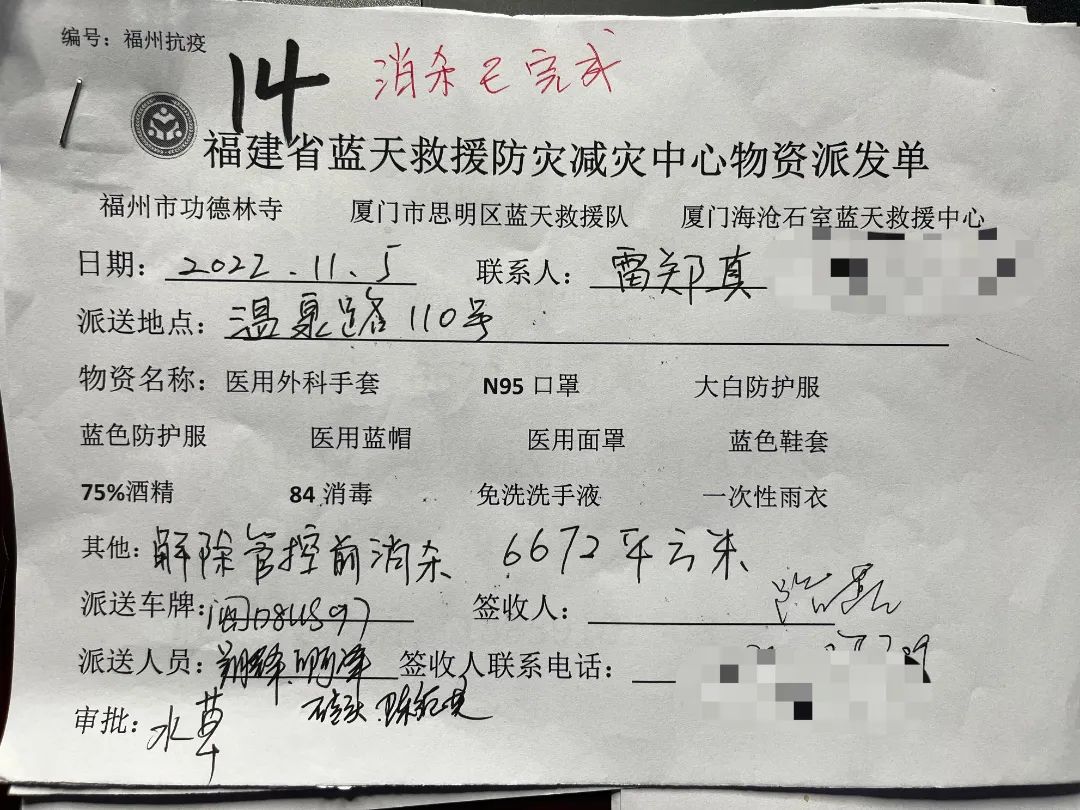 编号：福州抗疫
14 消杀已完成
福建省蓝天救援防灾减灾中心物资派发单
福州市功德林寺 厦门市思明区蓝天救援队 厦门海沧石室蓝天救援中心
日期：2022.11.5 联系人：雷郑真
派送地点：温泉路110号
物资名称：医用外科手套 N95口罩 大白防护服
蓝色防护服 医用蓝帽 医用面罩 蓝色鞋套
75%酒精 84消毒 免洗洗手液 一次性雨衣
其他：解除管控前消杀 6672平方米
派送车牌： 签收人：
派送人员： 签收人联系电话：
审批：水草